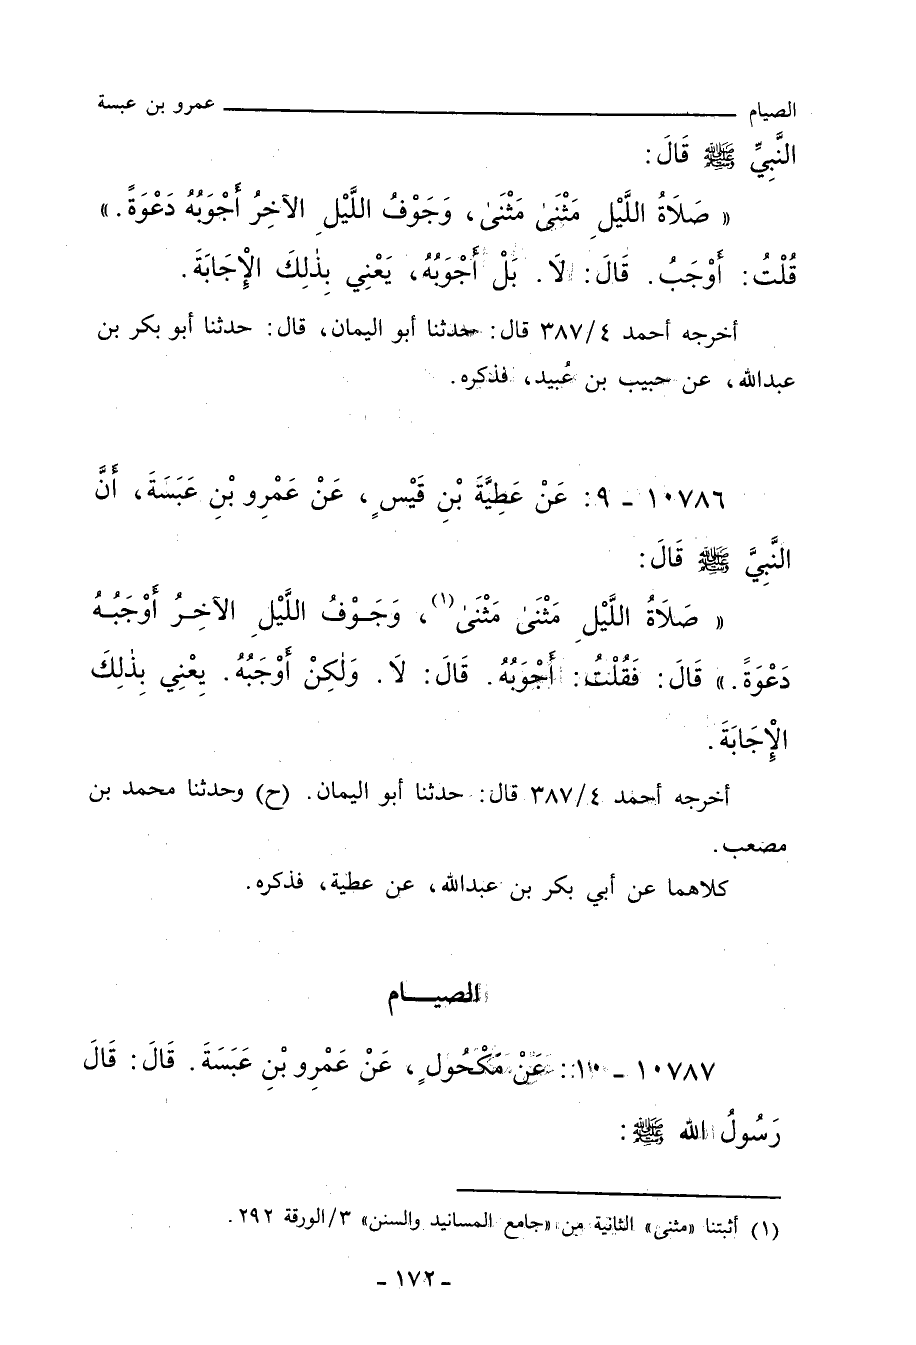 الصيام ــــــــــ عمرو بن عبسة
النَّبِيِّ ﷺ قَالَ:
« صَلَاةُ اللَّيْلِ مَثْنَىٰ مَثْنَىٰ، وَجَوْفُ اللَّيْلِ الآخِرُ أَجْوَبُهُ دَعْوَةً. »
قُلْتُ: أَوْجَبُ. قَالَ: لَا. بَلْ أَجْوَبُهُ، يَعْنِي بِذٰلِكَ الْإِجَابَةَ.
أخرجه أحمد ٣٨٧/٤ قال: حدثنا أبو اليمان، قال: حدثنا أبو بكر بن
عبدالله، عن حبيب بن عُبيد، فذكره.
١٠٧٨٦ - ٩: عَنْ عَطِيَّةَ بْنِ قَيْسٍ، عَنْ عَمْرِو بْنِ عَبَسَةَ، أَنَّ
النَّبِيَّ ﷺ قَالَ:
« صَلَاةُ اللَّيْلِ مَثْنَىٰ مَثْنَىٰ(١)، وَجَوْفُ اللَّيْلِ الآخِرُ أَوْجَبُهُ
دَعْوَةً. » قَالَ: فَقُلْتُ: أَجْوَبُهُ. قَالَ: لَا. وَلٰكِنْ أَوْجَبُهُ. يَعْنِي بِذٰلِكَ
الْإِجَابَةَ.
أخرجه أحمد ٣٨٧/٤ قال: حدثنا أبو اليمان. (ح) وحدثنا محمد بن
مصعب.
كلاهما عن أبي بكر بن عبدالله، عن عطية، فذكره.
الصيـــام
١٠٧٨٧ - ١٠: عَنْ مَكْحُولٍ، عَنْ عَمْرِو بْنِ عَبَسَةَ. قَالَ: قَالَ
رَسُولُ الله ﷺ:
(١) أثبتنا «مثنى» الثانية من «جامع المسانيد والسنن» ٣/الورقة ٢٩٢.
- ١٧٢ -